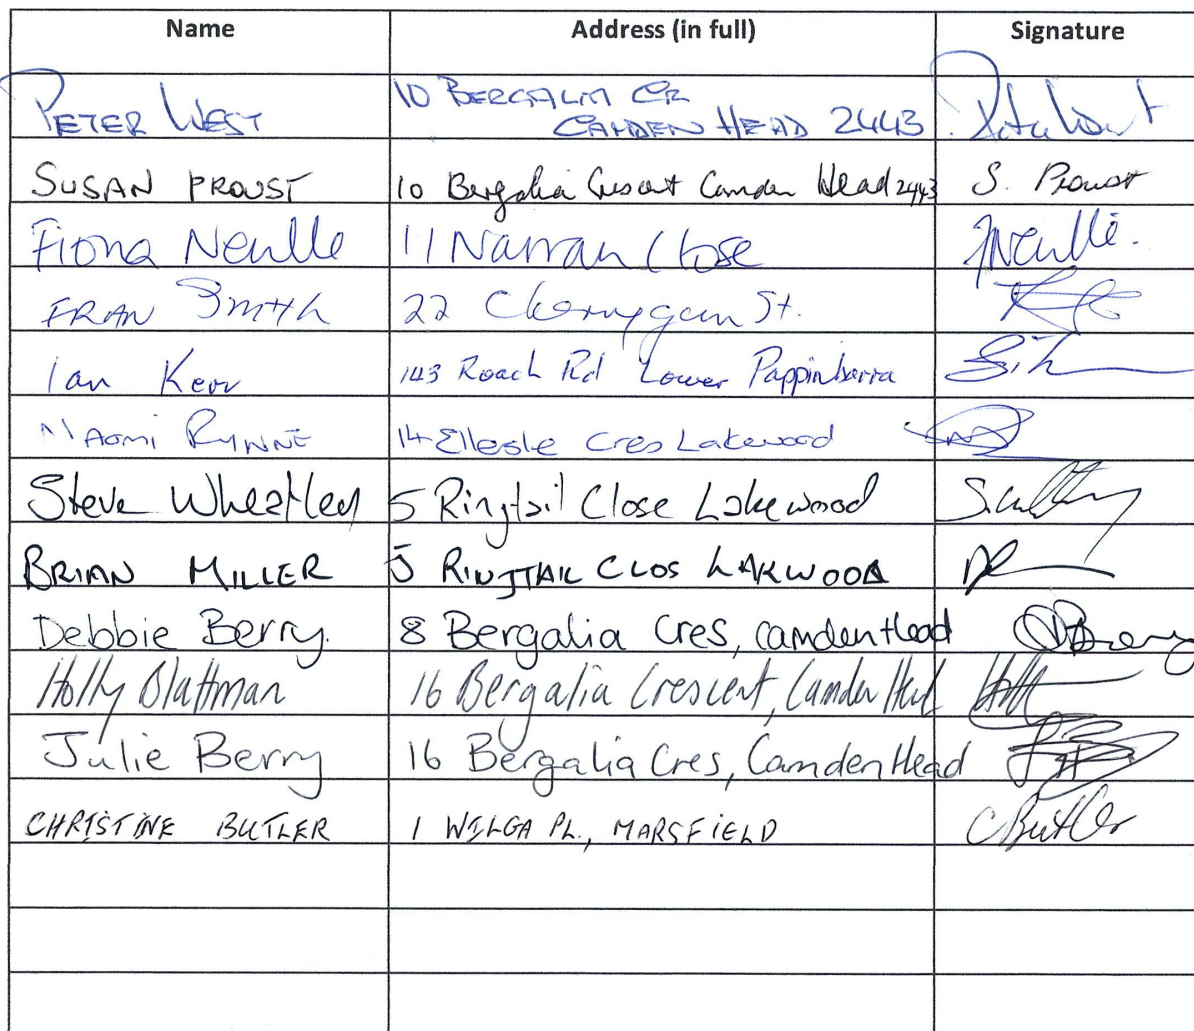 Name Address (in full) Signature
10 BERGALIA CR
PETER WEST CAMDEN HEAD 2443
SUSAN PROUST 10 Bergalia Crescent Camden Head 2443 S. Proust
Fiona Neville 11 Narran Close
FRAN Smith 22 St.
Ian Kerr 143 Roach Rd Lower Pappinbarra
NAOMI RYNNE 14 Cres Lakewood
Steve Wheatley 5 Ringtail Close Lakewood
BRIAN MILLER 5 RINGTAIL CLOS LAKWOOD
Debbie Berry. 8 Bergalia Cres, Camden Head
Holly Blattman 16 Bergalia Crescent, Camden Head
Julie Berry 16 Bergalia Cres, Camden Head
CHRISTINE BUTLER 1 WILGA PL., MARSFIELD C Butler